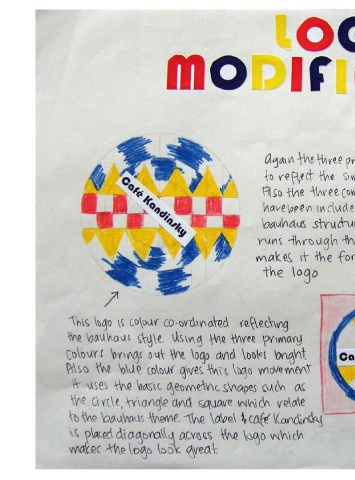 LO
MODIFI
Café Kandinsky
Again the three pr
to reflect the sim
Also the three com
have been include
bauhaus structu
runs through th
makes it the for
the logo
This logo is colour co-ordinated reflecting
the bauhaus style. Using the three primary
colours brings out the logo and looks bright
Also the blue colour gives this logo movement
it uses the basic geometric shapes such as
the circle, triangle and square which relate
to the bauhaus theme. The label café Kandinsky
is placed diagonally across the logo which
makes the logo look great.
Ca